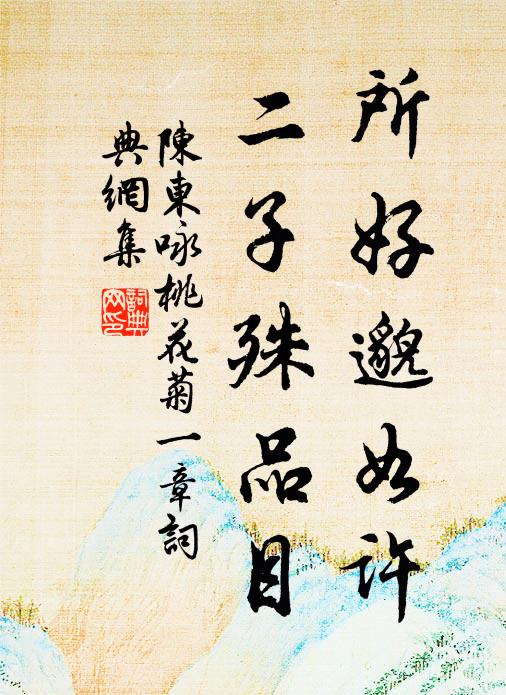 所好邈如许
二子殊品目
陳東咏桃花菊一章詞
典網集
詞典
网印